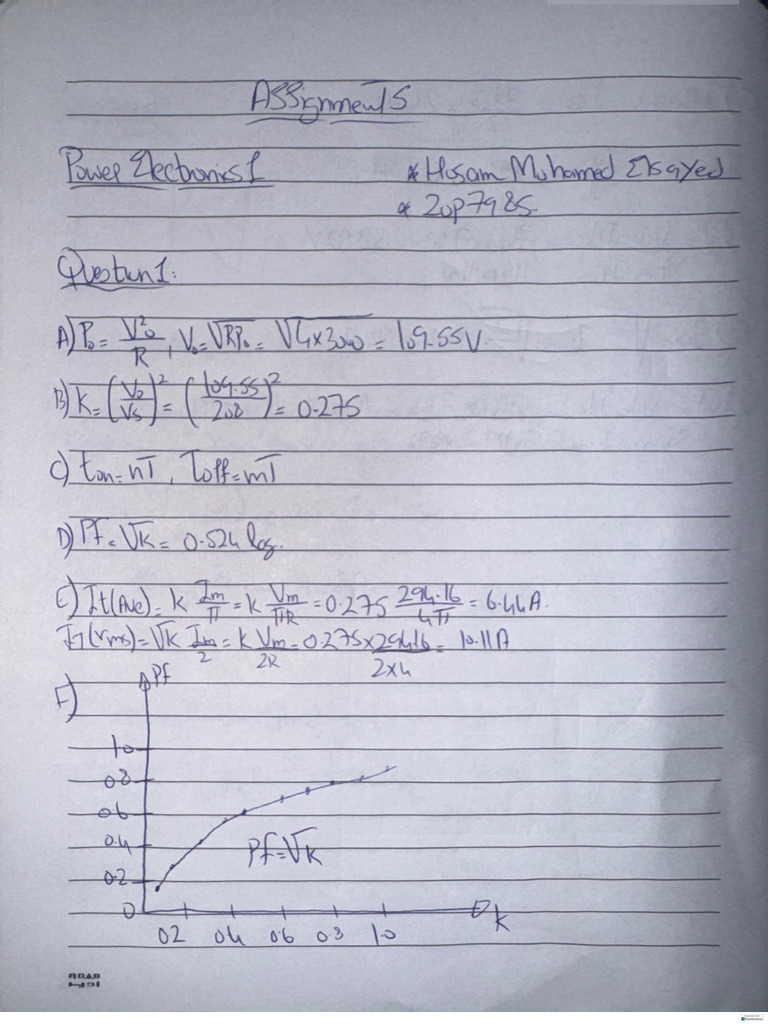 Assignment 5
Power Electronics 1
* Hosam Mohamed Elsayed
* 20P7985
Question 1:
A) Po = V²o/R, Vo = √RPo = √4×3000 = 109.55V
B) K = (Vo/Vs)² = (109.55/208)² = 0.275
C) ton = nT, Toff = mT
D) Pf = √K = 0.524 lag.
E) It(Ave) = K Im/π = K Vm/πR = 0.275 294.16/4π = 6.44A.
IT(rms) = √K Im/2 = K Vm/2R = 0.275×294.16/2×4 = 10.11A
F)
Pf
1.0
0.8
0.6
0.4
0.2
0
Pf = √K
K
0.2 0.4 0.6 0.8 1.0
ADAB